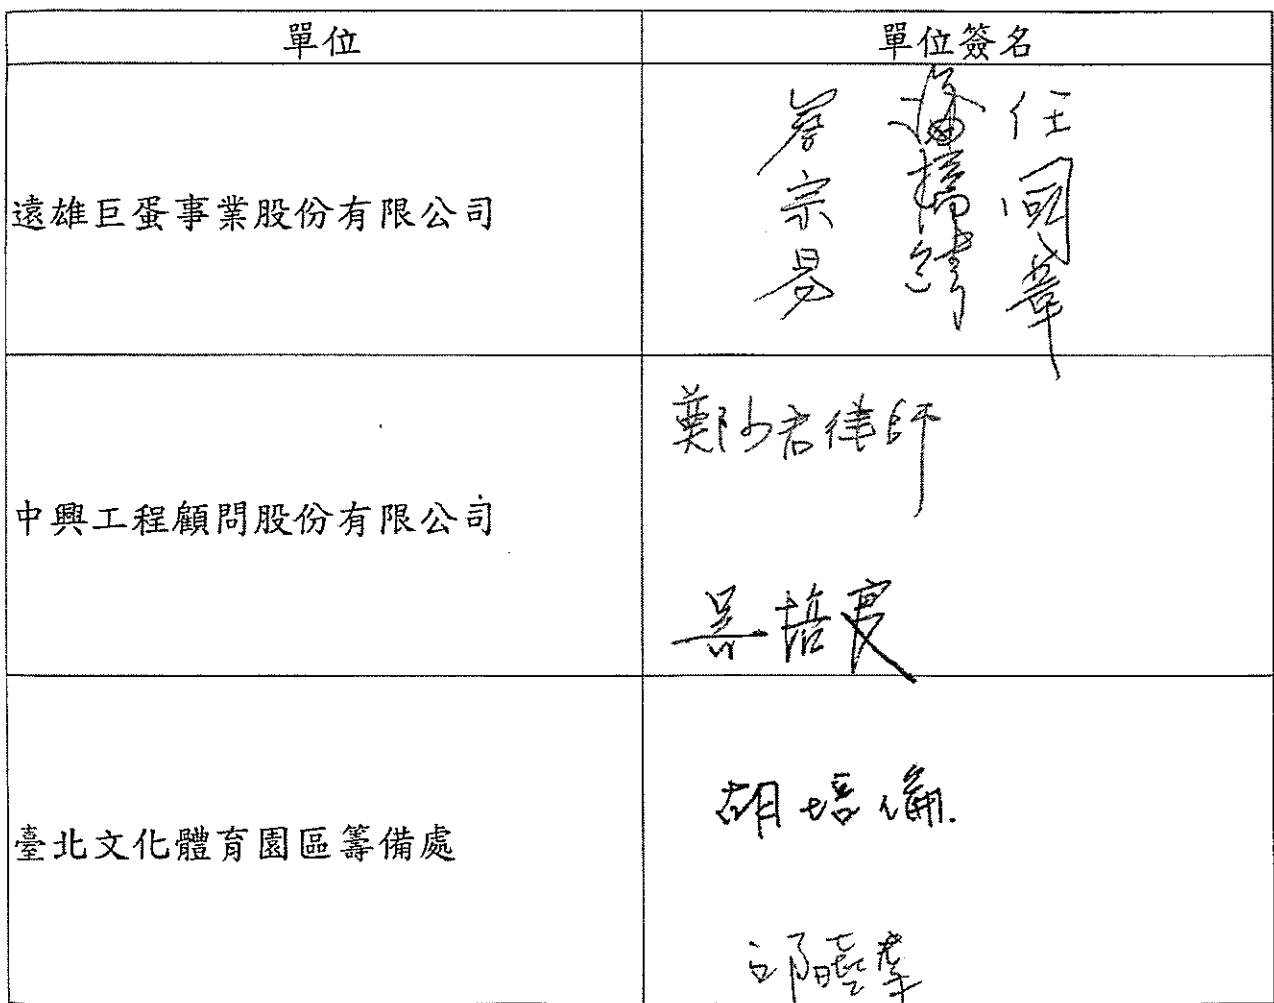 單位 單位簽名
遠雄巨蛋事業股份有限公司
蔡宗易
任國章
中興工程顧問股份有限公司
鄭少君律師
吳培
臺北文化體育園區籌備處
胡培倫
邱